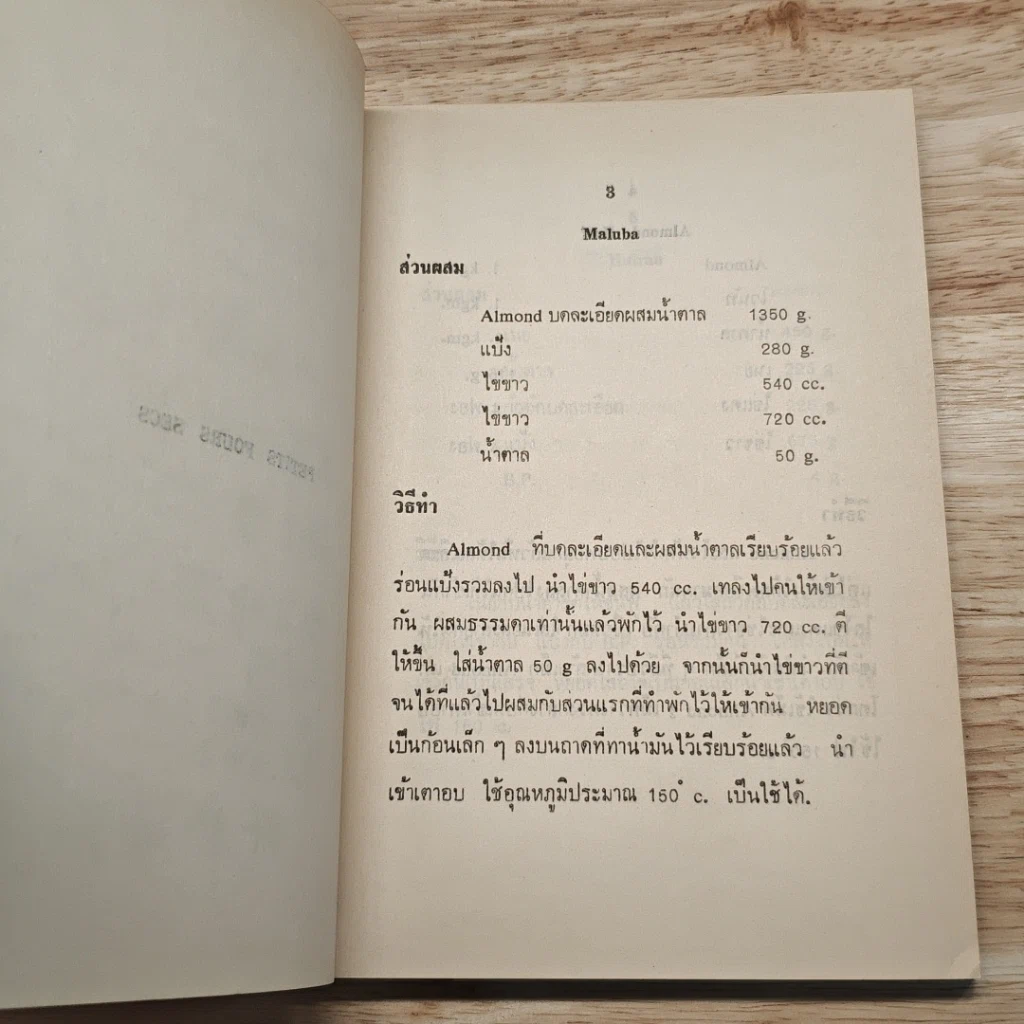 PETITS FOURS SECS
3
Maluba
ส่วนผสม
Almond บดละเอียดผสมน้ำตาล 1350 g.
แป้ง 280 g.
ไข่ขาว 540 cc.
ไข่ขาว 720 cc.
น้ำตาล 50 g.
วิธีทำ
Almond ที่บดละเอียดและผสมน้ำตาลเรียบร้อยแล้ว
ร่อนแป้งรวมลงไป นำไข่ขาว 540 cc. เทลงไปคนให้เข้า
กัน ผสมธรรมดาเท่านั้นแล้วพักไว้ นำไข่ขาว 720 cc. ตี
ให้ขึ้น ใส่น้ำตาล 50 g ลงไปด้วย จากนั้นก็นำไข่ขาวที่ตี
จนได้ที่แล้วไปผสมกับส่วนแรกที่ทำพักไว้ให้เข้ากัน หยอด
เป็นก้อนเล็ก ๆ ลงบนถาดที่ทาน้ำมันไว้เรียบร้อยแล้ว นำ
เข้าเตาอบ ใช้อุณหภูมิประมาณ 150° c. เป็นใช้ได้.